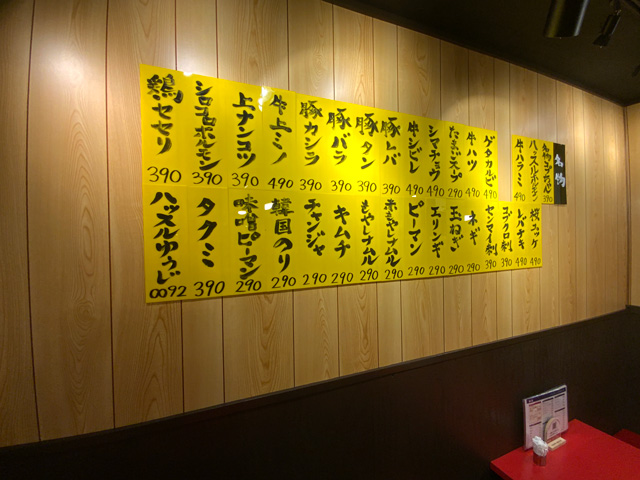 名物
ハッスルホルモン
牛ハラミ 490
ゲタカルビ 490
牛ハツ 490
シマチョウ 490
牛シビレ 490
豚レバ 390
豚タン 390
豚バラ 390
豚カシラ 390
牛上ミノ 490
上ナンコツ 390
シロコロホルモン 390
鶏セセリ 390
桜ユッケ 490
レバテキ 490
コブクロ刺 390
センマイ刺 390
ネギ 290
玉ねぎ 290
エリンギ 290
ピーマン 290
赤もやしナムル 290
もやしナムル 290
キムチ 290
チャンジャ 290
韓国のり 290
味噌ピーマン 290
タクミ 390
ハッスルゆうじ 0092